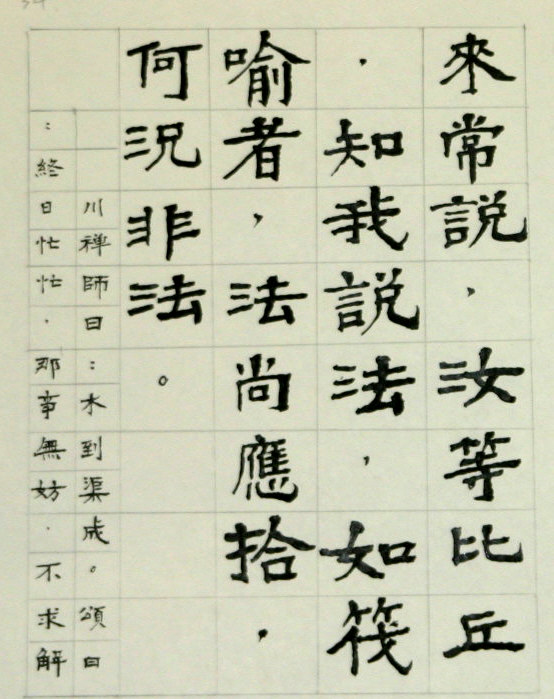 來常說，汝等比丘
．知我說法，如筏
喻者，法尚應拾，
何況非法。
川禪師曰：木到渠成。頌曰
：終日忙忙．那事無妨．不求解